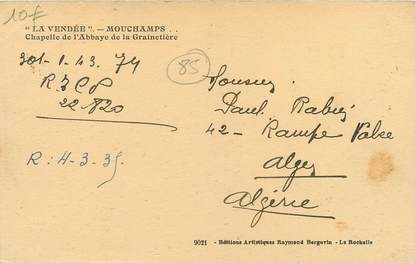 10F
"LA VENDÉE". — MOUCHAMPS . .
Chapelle de l'Abbaye de la Grainetière
85
301-1-43. 74
R.
22-820
R: 4-3-35
Paul
42- Rampe Valee
Alger
Algérie
9021 - Editions Artistiques Raymond Bergevin - La Rochelle